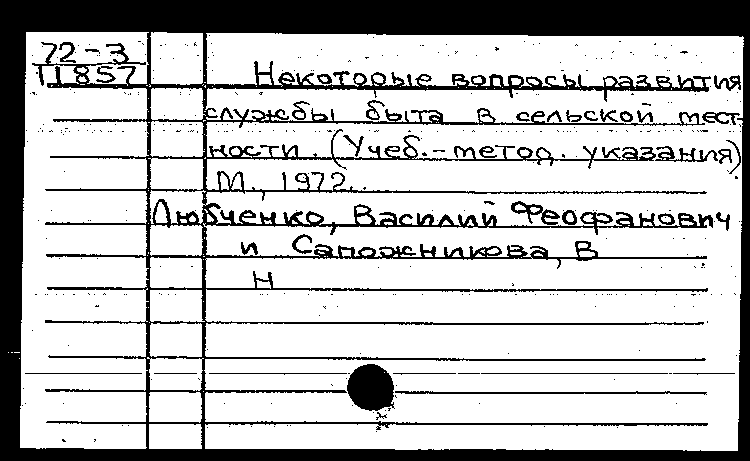 72-3
11857
Некоторые вопросы развития
службы быта в сельской мест-
ности. (Учеб.-метод. указания).
М., 1972.
Любченко, Василий Феофанович
и Сапожникова, В
Н